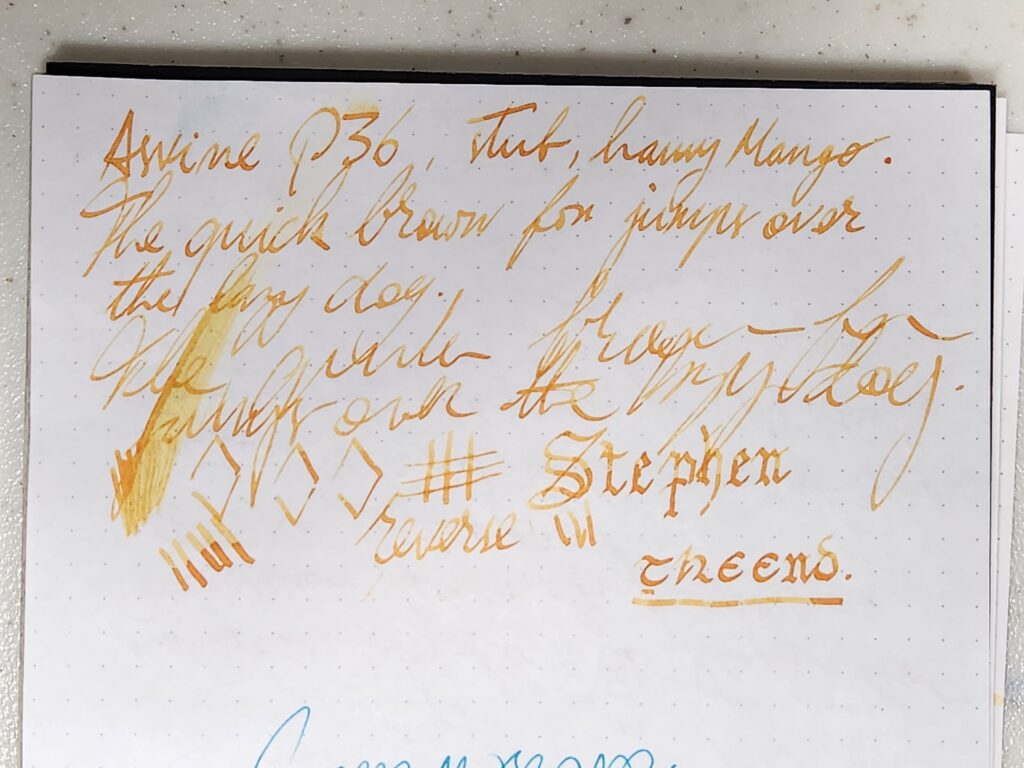 Asvine P36, stub, Mango.
The quick brown fox jumps over
the lazy dog.
The quick brown fox
jumps over the lazy dog.
Stephen
reverse
THE END.